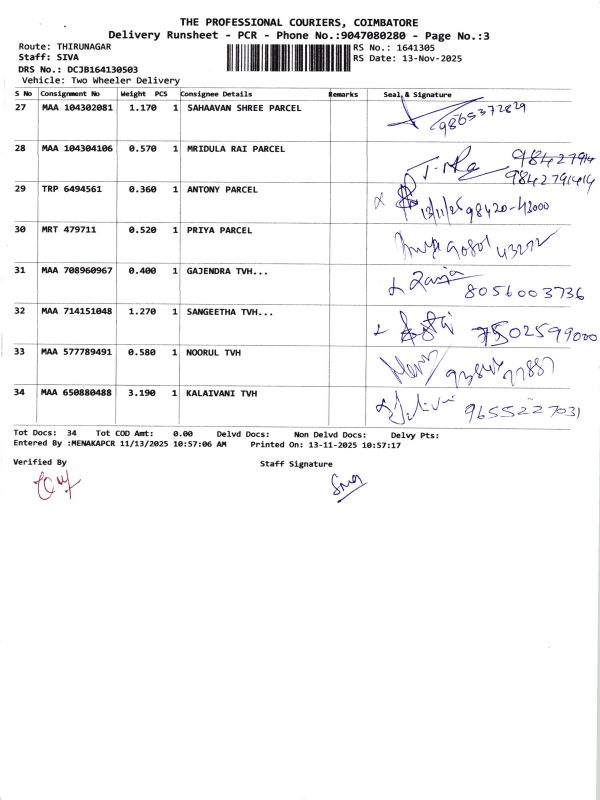 THE PROFESSIONAL COURIERS, COIMBATORE
Delivery Runsheet - PCR - Phone No.:9047080280 - Page No.:3
Route: THIRUNAGAR RS No.: 1641305
Staff: SIVA RS Date: 13-Nov-2025
DRS No.: DCJB164130503
Vehicle: Two Wheeler Delivery
S No Consignment No Weight PCS Consignee Details Remarks Seal & Signature
27 MAA 104302081 1.170 1 SAHAAVAN SHREE PARCEL 9865372829
28 MAA 104304106 0.570 1 MRIDULA RAI PARCEL
9842791414
29 TRP 6494561 0.360 1 ANTONY PARCEL
13/11/25 98420-43000
30 MRT 479711 0.520 1 PRIYA PARCEL
31 MAA 708960967 0.400 1 GAJENDRA TVH...
8056003736
32 MAA 714151048 1.270 1 SANGEETHA TVH...
7502599000
33 MAA 577789491 0.580 1 NOORUL TVH
34 MAA 650880488 3.190 1 KALAIVANI TVH
9655227031
Tot Docs: 34 Tot COD Amt: 0.00 Delvd Docs: Non Delvd Docs: Delvy Pts:
Entered By :MENAKAPCR 11/13/2025 10:57:06 AM Printed On: 13-11-2025 10:57:17
Verified By Staff Signature